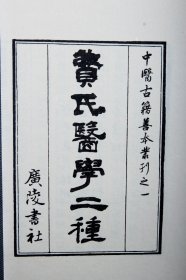 中醫古籍善本叢刊之一
費氏醫學二種
廣陵書社